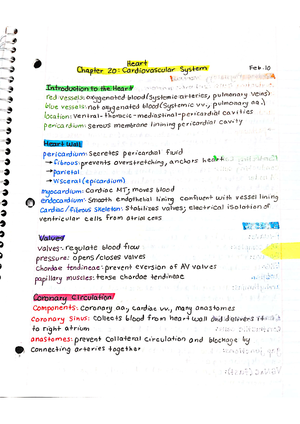 Heart
Chapter 20: Cardiovascular System Feb. 10
Introduction to the Heart
red vessels: oxygenated blood (systemic arteries, pulmonary veins)
blue vessels: not oxygenated blood (systemic vv., pulmonary aa.)
location: ventral-thoracic-mediastinal-pericardial cavities
pericardium: serous membrane lining pericardial cavity
Heart Wall
pericardium: Secretes pericardial fluid
→ fibrous: prevents overstretching, anchors heart
→ parietal
→ visceral (epicardium)
myocardium: Cardiac MT; moves blood
endocardium: Smooth endothelial lining confluent with vessel lining
Cardiac/fibrous Skeleton: Stabilizes valves; electrical isolation of
ventricular cells from atrial cells
Valves
valves: regulate blood flow
pressure: opens/closes valves
Chordae tendineae: prevent eversion of AV valves
papillary muscles: tense chordae tendineae
Coronary Circulation
Components: Coronary aa., cardiac vv., many anastomes
Coronary Sinus: Collects blood from heart wall and delivers it
to right atrium
anastomes: prevent Collateral Circulation and blockage by
Connecting arteries together